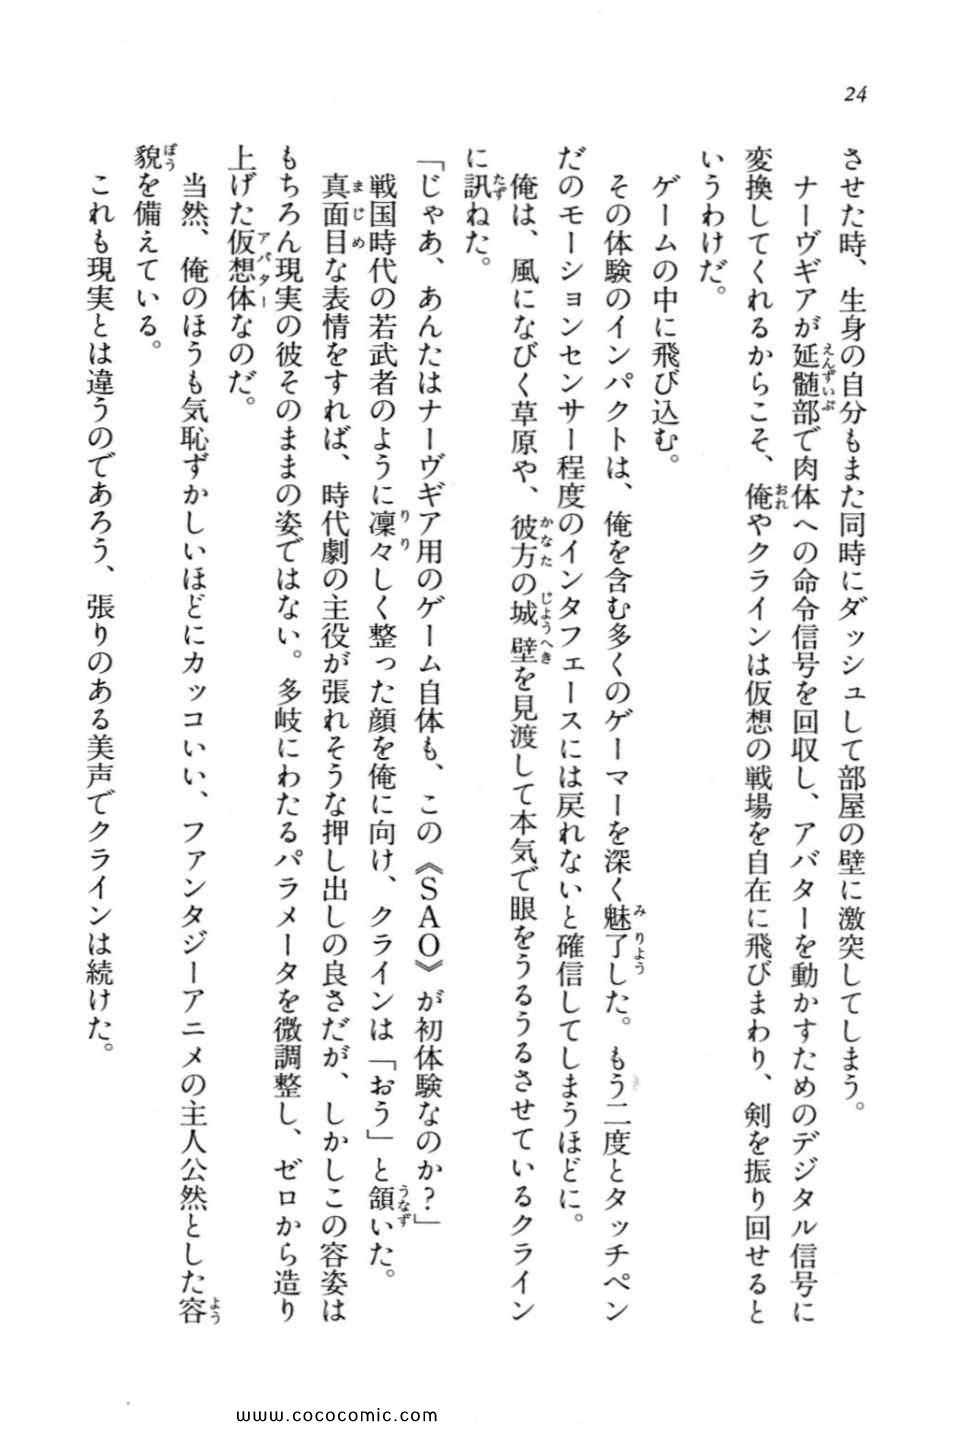 24
させた時、生身の自分もまた同時にダッシュして部屋の壁に激突してしまう。
ナーヴギアが延髄部で肉体への命令信号を回収し、アバターを動かすためのデジタル信号に
変換してくれるからこそ、俺やクラインは仮想の戦場を自在に飛びまわり、剣を振り回せると
いうわけだ。
ゲームの中に飛び込む。
その体験のインパクトは、俺を含む多くのゲーマーを深く魅了した。もう二度とタッチペン
だのモーションセンサー程度のインタフェースには戻れないと確信してしまうほどに。
俺は、風になびく草原や、彼方の城壁を見渡して本気で眼をうるうるさせているクライン
に訊ねた。
「じゃあ、あんたはナーヴギア用のゲーム自体も、この《SAO》が初体験なのか?」
戦国時代の若武者のように凜々しく整った顔を俺に向け、クラインは「おう」と頷いた。
真面目な表情をすれば、時代劇の主役が張れそうな押し出しの良さだが、しかしこの容姿は
もちろん現実の彼そのままの姿ではない。多岐にわたるパラメータを微調整し、ゼロから造り
上げた仮想体なのだ。
当然、俺のほうも気恥ずかしいほどにカッコいい、ファンタジーアニメの主人公然とした容
貌を備えている。
これも現実とは違うのであろう、張りのある美声でクラインは続けた。
www.cococomic.com